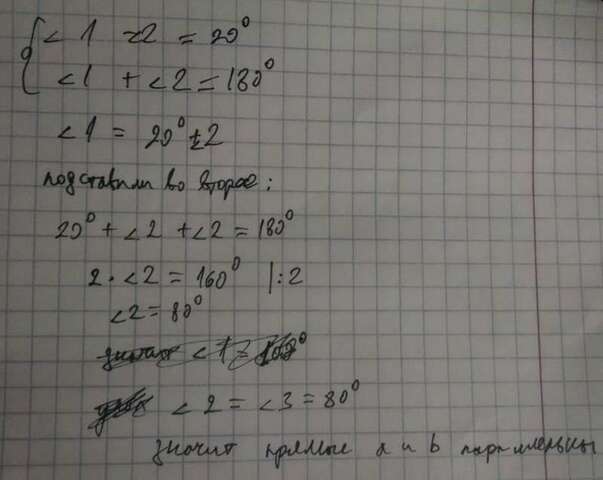 ∠1 -∠2 = 20°
∠1 + ∠2 = 180°
∠1 = 20° + ∠2
подставили во второе:
20° + ∠2 + ∠2 = 180°
2 · ∠2 = 160° |:2
∠2 = 80°
∠2 = ∠3 = 80°
значит прямые a и b параллельны